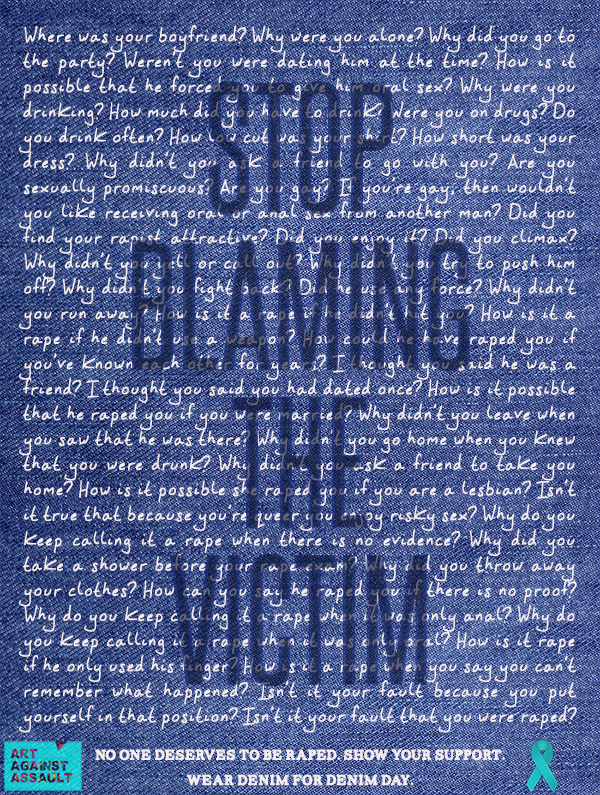 Where was your boyfriend? Why were you alone? Why did you go to
the party? Weren't you were dating him at the time? How is it
possible that he forced you to give him oral sex? Why were you
drinking? How much did you have to drink? Were you on drugs? Do
you drink often? How low cut was your shirt? How short was your
dress? Why didn't you ask a friend to go with you? Are you
sexually promiscuous? Are you gay? If you're gay, then wouldn't
you like receiving oral or anal sex from another man? Did you
find your rapist attractive? Did you enjoy it? Did you climax?
Why didn't you yell or call out? Why didn't you try to push him
off? Why didn't you fight back? Did he use any force? Why didn't
you run away? How is it a rape if he didn't hit you? How is it a
rape if he didn't use a weapon? How could he have raped you if
you've known each other for years? I thought you said he was a
friend? I thought you said you had dated once? How is it possible
that he raped you if you were married? Why didn't you leave when
you saw that he was there? Why didn't you go home when you knew
that you were drunk? Why didn't you ask a friend to take you
home? How is it possible she raped you if you are a lesbian? Isn't
it true that because you're queer you enjoy risky sex? Why do you
keep calling it a rape when there is no evidence? Why did you
take a shower before your rape exam? Why did you throw away
your clothes? How can you say he raped you if there is no proof?
Why do you keep calling it a rape when it was only anal? Why do
you keep calling it a rape when it was only oral? How is it rape
if he only used his finger? How is it a rape when you say you can't
remember what happened? Isn't it your fault because you put
yourself in that position? Isn't it your fault that you were raped?
STOP
BLAMING
THE
VICTIM
ART
AGAINST
ASSAULT
NO ONE DESERVES TO BE RAPED. SHOW YOUR SUPPORT.
WEAR DENIM FOR DENIM DAY.